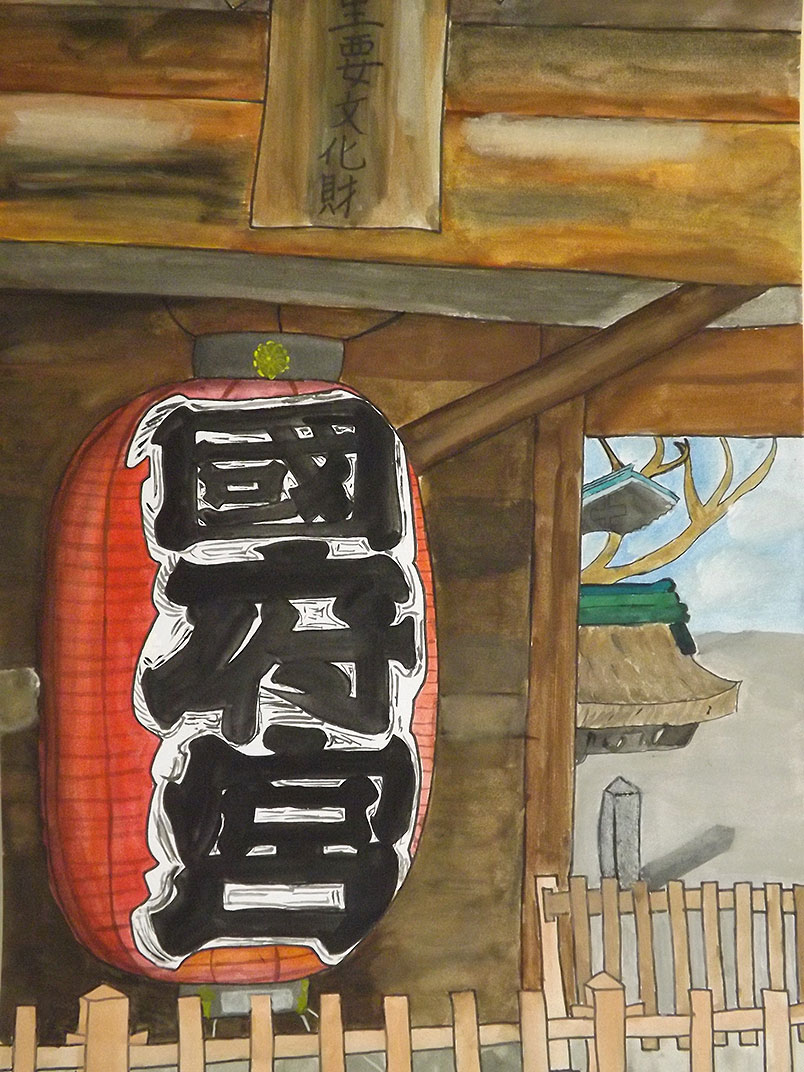 重要文化財
國府宮